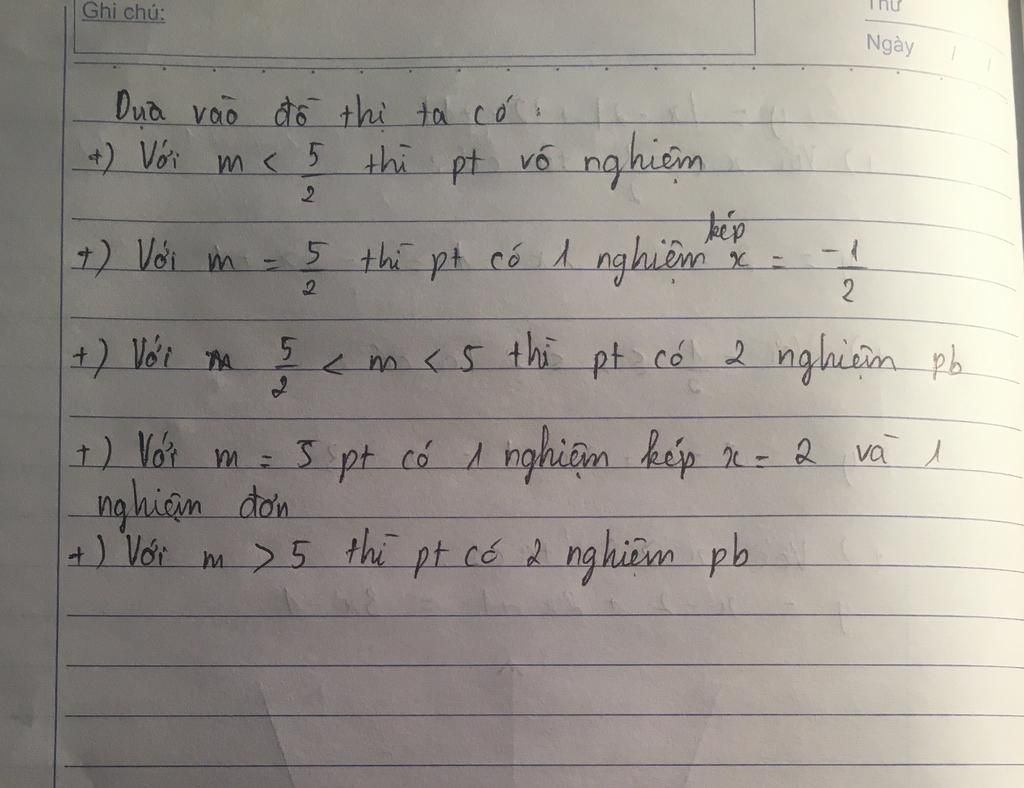 Ghi chú:
Thứ
Ngày
Dựa vào đồ thị ta có:
+) Với m < 5/2 thì pt vô nghiệm
+) Với m = 5/2 thì pt có 1 nghiệm kép x = -1/2
+) Với m 5/2 < m < 5 thì pt có 2 nghiệm pb
+) Với m = 5 pt có 1 nghiệm kép x = 2 và 1
nghiệm đơn
+) Với m > 5 thì pt có 2 nghiệm pb